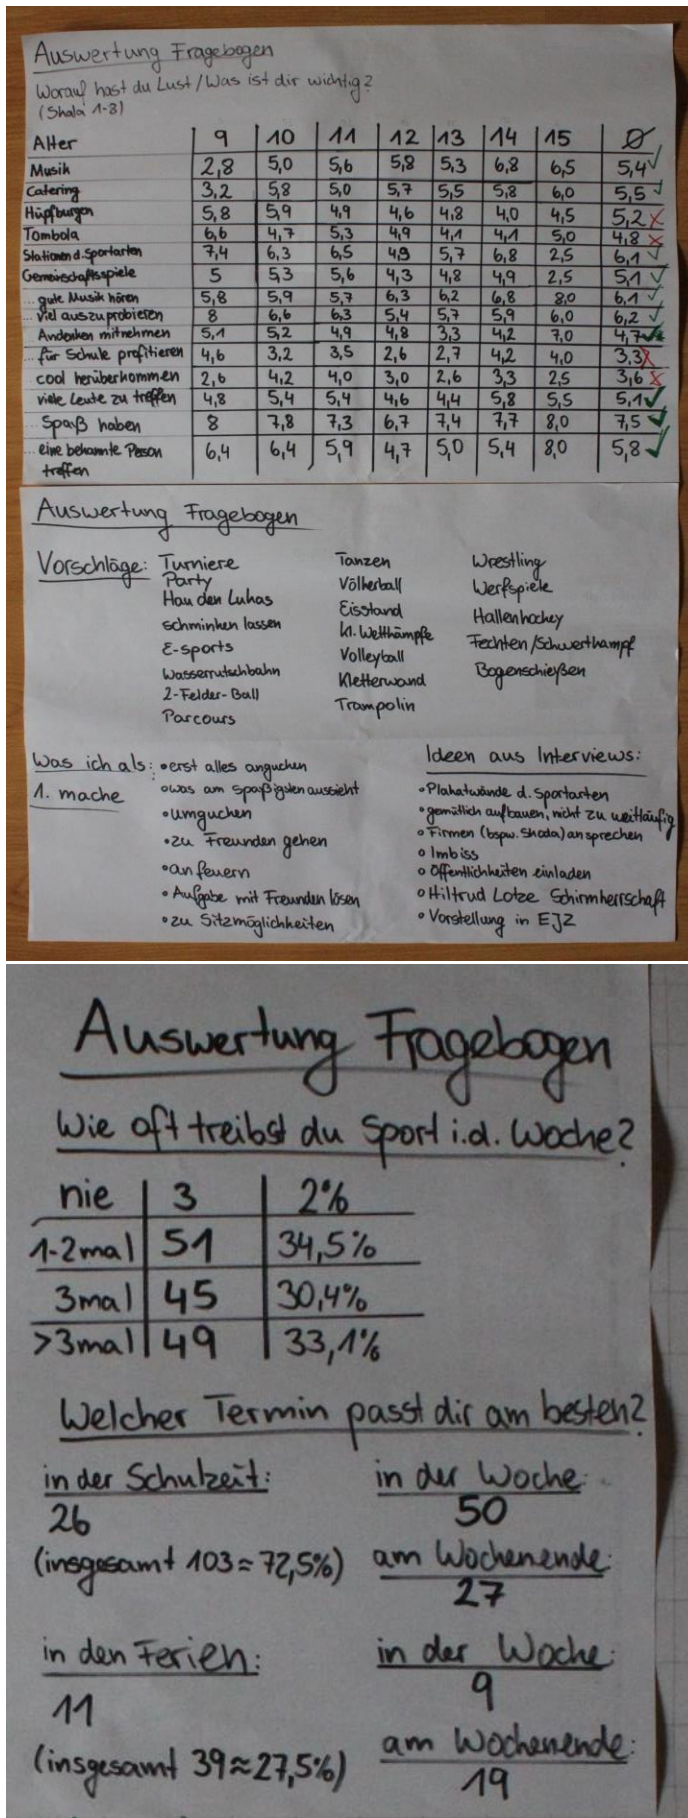 Auswertung Fragebogen
Worauf hast du Lust / Was ist dir wichtig?
(Skala 1-8)
Alter 9 10 11 12 13 14 15 Ø
Musik 2,8 5,0 5,6 5,8 5,3 6,8 6,5 5,4 ✓
Catering 3,2 5,8 5,0 5,7 5,5 5,8 6,0 5,5 ✓
Hüpfburgen 5,8 5,9 4,9 4,6 4,8 4,0 4,5 5,2 ✗
Tombola 6,6 4,7 5,3 4,9 4,1 4,1 5,0 4,8 ✗
Stationen d. Sportarten 7,4 6,3 6,5 4,9 5,7 6,8 2,5 6,1 ✓
Gemeinschaftsspiele 5 5,3 5,6 4,3 4,8 4,9 2,5 5,1 ✓
... gute Musik hören 5,8 5,9 5,7 6,3 6,2 6,8 8,0 6,1 ✓
... viel auszuprobieren 8 6,6 6,3 5,4 5,7 5,9 6,0 6,2 ✓
Andenken mitnehmen 5,1 5,2 4,9 4,8 3,3 4,2 7,0 4,7 ✓
... für Schule profitieren 4,6 3,2 3,5 2,6 2,7 4,2 4,0 3,3 ✗
cool herüberkommen 2,6 4,2 4,0 3,0 2,6 3,3 2,5 3,6 ✗
viele Leute zu treffen 4,8 5,4 5,4 4,6 4,4 5,8 5,5 5,1 ✓
Spaß haben 8 7,8 7,3 6,7 7,4 7,7 8,0 7,5 ✓
... eine bekannte Person 6,4 6,4 5,9 4,7 5,0 5,4 8,0 5,8 ✓
treffen
Auswertung Fragebogen
Vorschläge: Turniere
Party
Hau den Lukas
schminken lassen
E-sports
Wasserrutschbahn
2-Felder-Ball
Parcours
Tanzen
Völkerball
Eisstand
kl. Wettkämpfe
Volleyball
Kletterwand
Trampolin
Wrestling
Werfspiele
Hallenhockey
Fechten/Schwertkampf
Bogenschießen
Was ich als
1. mache:
• erst alles angucken
• was am spaßigsten aussieht
• umgucken
• zu Freunden gehen
• anfeuern
• Aufgabe mit Freunden lösen
• zu Sitzmöglichkeiten
Ideen aus Interviews:
• Plakatwände d. Sportarten
• gemütlich aufbauen, nicht zu weitläufig
• Firmen (bspw. Skoda) ansprechen
• Imbiss
• Öffentlichkeiten einladen
• Hiltrud Lotze Schirmherrschaft
• Vorstellung in EJZ
Auswertung Fragebogen
Wie oft treibst du Sport i.d. Woche?
nie 3 2%
1-2mal 51 34,5%
3mal 45 30,4%
>3mal 49 33,1%
Welcher Termin passt dir am besten?
in der Schulzeit:
26
(insgesamt 103 ≈ 72,5%)
in der Woche:
50
am Wochenende:
27
in den Ferien:
11
(insgesamt 39 ≈ 27,5%)
in der Woche:
9
am Wochenende:
19